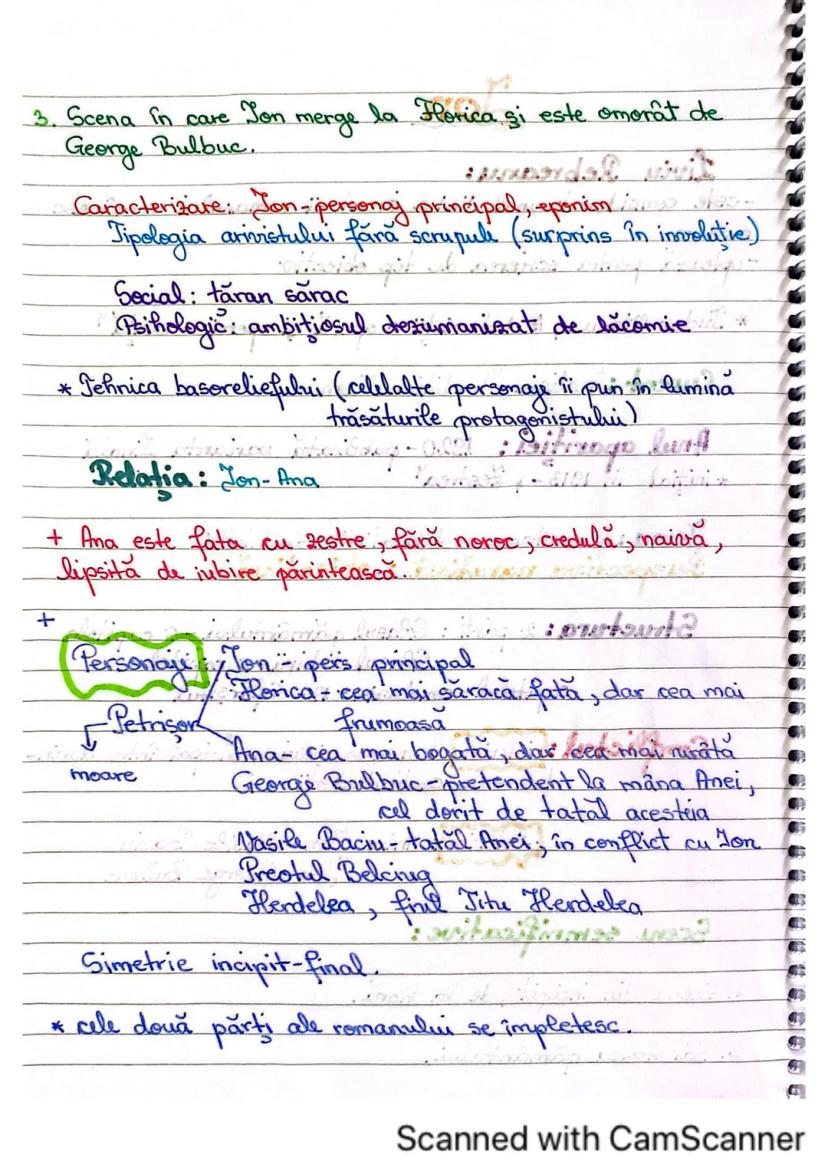 3. Scena în care Ion merge la Florica și este omorât de
George Bulbuc.
Caracterizare: Ion - personaj principal, eponim
Tipologia arivistului fără scrupule (surprins în involuție)
Social: țăran sărac
Psihologic: ambițiosul dezumanizat de lăcomie
* Tehnica basoreliefului (celelalte personaje îi pun în lumină
trăsăturile protagonistului)
Relația: Ion - Ana
+ Ana este fata cu zestre, fără noroc, credulă, naivă,
lipsită de iubire părintească.
+
Personaje: Ion - pers principal
Florica - cea mai săracă fată, dar cea mai
frumoasă
Petrișor
moare
Ana - cea mai bogată, dar cea mai urâtă
George Bulbuc - pretendent la mâna Anei,
cel dorit de tatăl acesteia
Vasile Baciu - tatăl Anei, în conflict cu Ion
Preotul Belciug
Herdelea, fiul Titu Herdelea
Simetrie incipit-final.
* cele două părți ale romanului se împletesc.
Scanned with CamScanner